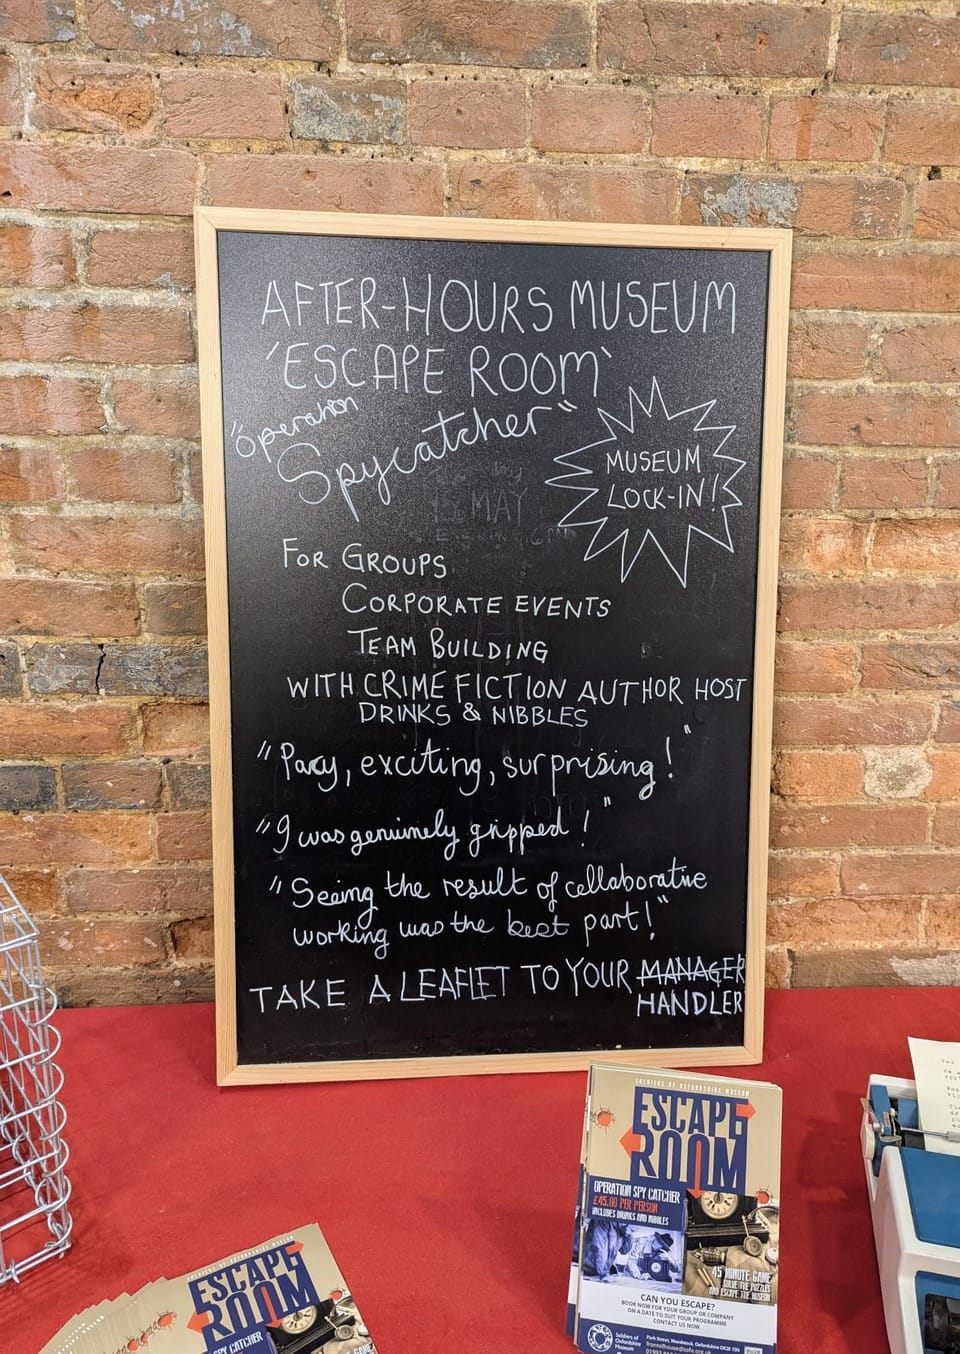 AFTER-HOURS MUSEUM
'ESCAPE ROOM'
"operation
Spycatcher"
MUSEUM
LOCK-IN!
MAY
6PM
FOR GROUPS
CORPORATE EVENTS
TEAM BUILDING
WITH CRIME FICTION AUTHOR HOST
DRINKS & NIBBLES
"Pacy, exciting, surprising!"
"I was genuinely gripped!"
"Seeing the result of collaborative
working was the best part!"
TAKE A LEAFLET TO YOUR MANAGER
HANDLER
SOLDIERS OF OXFORDSHIRE MUSEUM
ESCAPE
ROOM
OPERATION SPY CATCHER
£45.00 PER PERSON
INCLUDES DRINKS AND NIBBLES
45 MINUTE GAME
SOLVE THE PUZZLES
AND ESCAPE THE MUSEUM
CAN YOU ESCAPE?
BOOK NOW FOR YOUR GROUP OR COMPANY
ON A DATE TO SUIT YOUR PROGRAMME
CONTACT US NOW
Soldiers of
Oxfordshire
Museum
Park Street, Woodstock, Oxfordshire OX20 1SN
frontofhouse@sofo.org.uk
SOLDIERS OF OXFORDSHIRE MUSEUM
ESCAPE
ROOM
SPY CATCHER